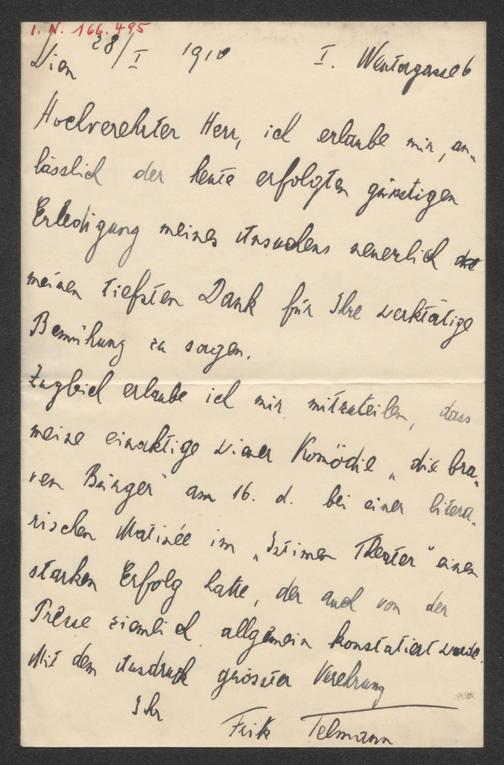 I. N. 166.495
Wien 28/I 1910 I. Wertorgasse 6
Hochverehrter Herr, ich erlaube mir, an-
lässlich der heute erfolgten günstigen
Erledigung meines Ansuchens neuerlich
meinen tiefsten Dank für Ihre werktätige
Bemühung zu sagen.
Zugleich erlaube ich mir mitzuteilen, dass
meine einaktige Wiener Komödie „die bra-
ven Bürger" am 16. d. bei einer litera-
rischen Matinée im „Intimen Theater" einen
starken Erfolg hatte, der auch von der
Presse ziemlich allgemein konstatiert wurde.
Mit dem Ausdruck grösster Verehrung
Ihr
Fritz Telmann